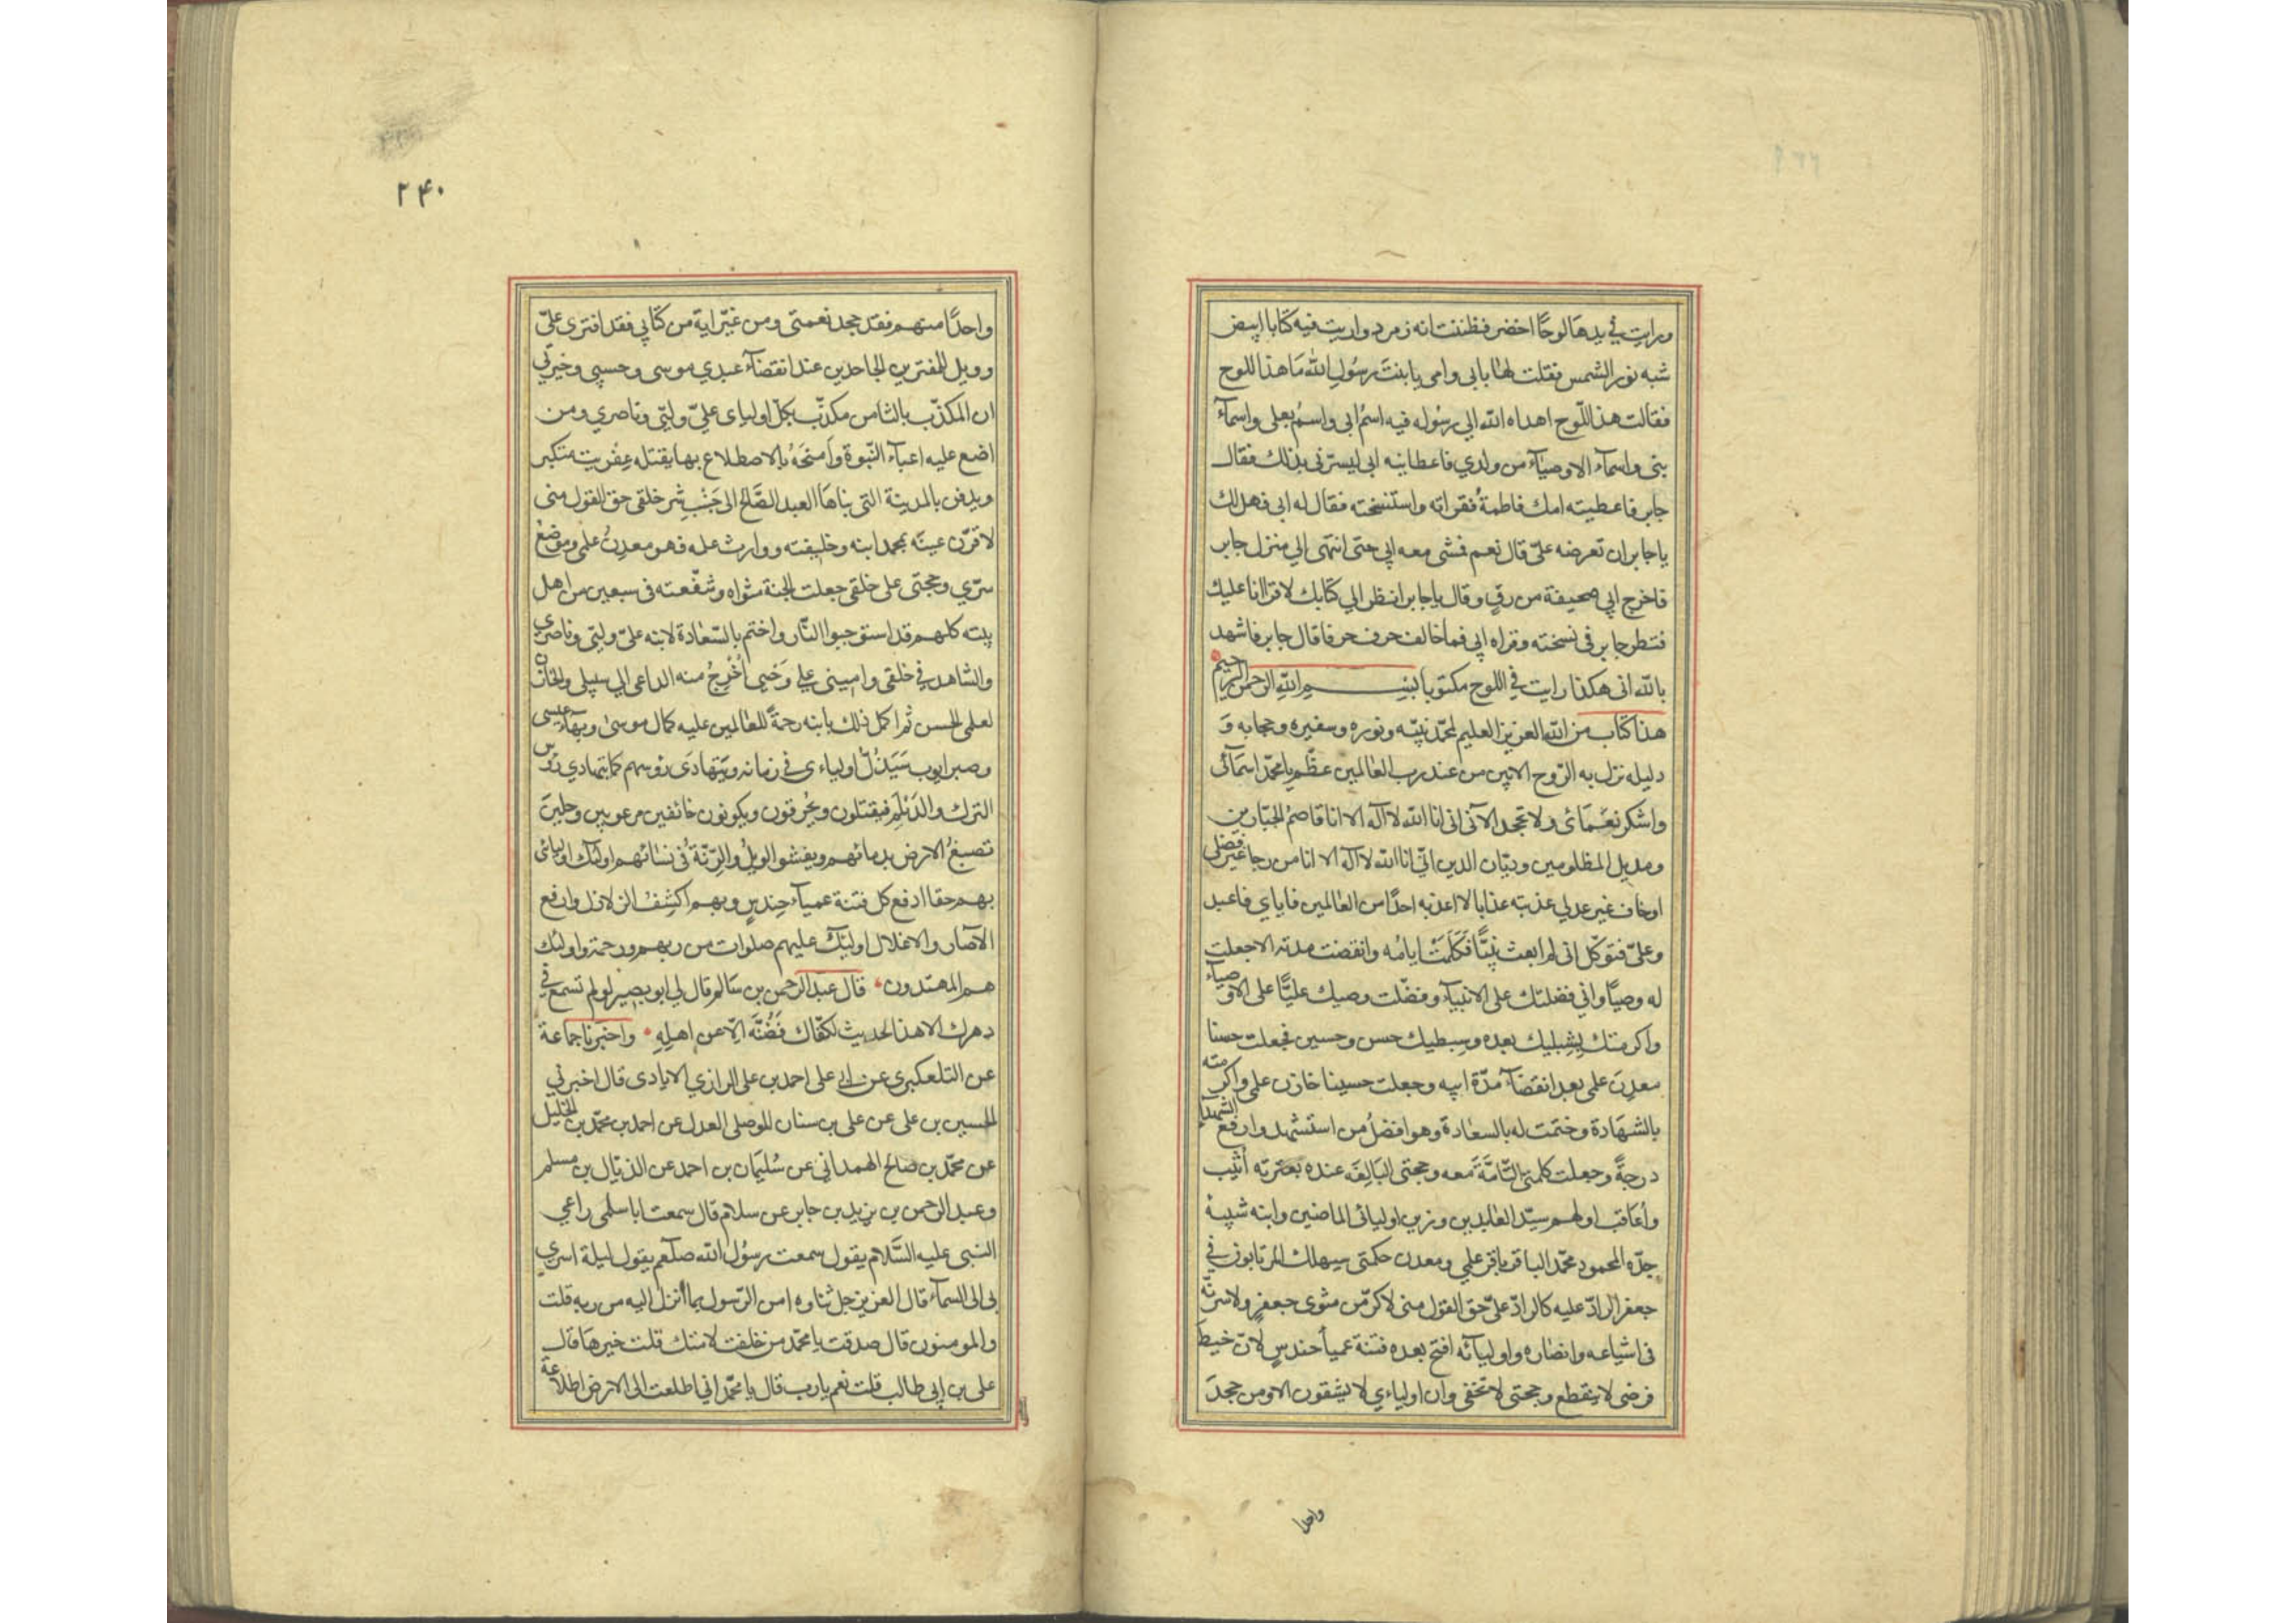 ورايت في يدها لوحًا اخضر فظننت انه زمرد ورايت فيه كتابا ابيض
شبه نور الشمس فقلت لها بابي وامي يا بنت رسُول الله مَا هذا اللوح
فقالت هذا اللّوح اهداه الله الي رسُوله فيه اسمُ ابي واسمُ بعلي واسمآء
بنى واسمآء الاوصيآء من ولدي فاعطانيه ابي ليسرّني بذلك فقال
جابر فاعطيته امك فاطمةُ فقراته واستنسخته فقال له ابي فهل لك
يا جابر ان تعرضه عليّ قال نعم فمشى معه ابي حتى انتهى الي منزل جابر
فاخرج ابي صحيفة من رقٍ وقال يا جابر انظر الي كتابك لاقرا انا عليك
فنظر جابر في نسخته وقراه ابي فما خالف حرف حرفا قال جابر فاشهد
بالله اني هكذا رايت في اللوح مكتوبا بسم الله الرحمن الرحيم
هذا كتاب من الله العزيز العليم لمحمّد نبيّه ونوره وسفيره وحجابه وَ
دليله نزل به الرّوح الامين من عند رب العالمين عظّم يا محمّد اسمَآئى
واشكر نعْمَائى ولا تجحد الآئى انى انا الله لا آله الا انا قاصمُ الجبّارين
ومديل المظلومين وديّان الدين انّي انا الله لا آله الا انا من رجا غير فضلى
او خاف غير عدلي عذبته عذابا لا اعذبه احدًا من العالمين فاياي فاعبد
وعليّ فتوكّل انى لم ابعث نبيّا فَكَلَمَتْ ايامُه وانقضت مدته الا جعلت
له وصيًا واني فضلتك على الانبيآء وفضّلت وصيك عليًّا على الاوصيآء
واكرمتك بِشِبليك بعده وسِبطيك حسن وحسين فجعلت حسنا
معدِنَ علمى بعد انقضآء مدّة ابيه وجعلت حسينا خازن علمى واكرمته
بالشهَادة وختمت له بالسعادة وهو افضلُ من استشهد وارفع الشهدآ
درجةً وجعلت كلمتى التّامَّةَ معه وحجتى البَالِغَه عنده بعترته اُثيب
وأعَاقب اولهم سيّد العابدين وزين اوليائى الماضين وابنه شبيهُ
جدّه المحمود محمّد الباقر باقر علمي ومعدن حكمتى سيهلك المرتابون في
جعفر الرادّ عليه كالرادّ عليّ حق القول منى لاكرّمنّ مثوى جعفرٍ ولاسرنّه
فى اشياعه وانصَاره واوليآئه افتح بعده فتنة عميآ حندسٍ لانّ خيطَ
فرضى لا ينقطع وحجتى لا تخفى وان اوليآءي لا يشقون الا ومن جحدَ
واحدا
۲۴۰
واحدًا منهم فقد جحد نعمتى ومن غيّر اية من كتابي فقد افترى عليّ
وويل للمفترين الجاحدين عند انقضآء عبدي موسى وحبيبى وخيرتي
ان المكذّب بالثامن مكذّب بكلّ اولياى عليّ وليّى وناصري ومن
اضع عليه اعبآء النّبوة وأمنحَهُ بالاضطلاع بها يقتله عِفْريت متكبر
ويدفن بالمدينة التى بناهَا العبد الصَّالحُ الى جَنْبِ شرِ خلقى حق القول منى
لاقرّن عينَه بمحمد ابنه وخليفته ووارث علمه فهو معدِنُ علمى وموضعُ
سرّي وحجتى على خلقى جعلت الجنة مثواه وشفّعته فى سبعين من اهل
بيته كلهم قد استوجبوا النّار واختم بالسّعادة لابنه عليّ وليّى وناصري
والشاهد في خلقى وامينى على وَحْيى اُخْرِجُ منه الداعى الي سبيلى والخازن
لعلمى الحسن ثم اكمل ذلك بابنه رحمةً للعالمين عليه كمال موسىٰ وبهآء عيسى
وصبر ايوب سَيَذِلّ اولياءى فى زمانه ويَتَهادَى رؤسهم كما يتهادي رُؤس
الترك والدَيْلَم فيقتلون ويُحْرقون ويكونون خائفين مرعوبين وجلينَ
تصبغُ الارض بدمائهم ويفشو الويلُ والرّنّةُ فى نسائهم اولئك اوليائى
بهم حقا ادفع كل فتنة عميآء حِندسٍ وبهم اكشِفُ الزلازل وارفع
الآصار والاغلال اولئِك عليهم صلوات من ربهم ورحمة واولئك
هم المهتدون • قال عبد الرحمن بن سَالم قال لي ابو بصير لو لم تسمع في
دهرك الا هذا الحديث لكفاك فَصُنْهُ الّا عن اهلِهِ • واخبرنا جماعة
عن التلعكبرى عن ابي على احمد بن على الرازي الايادى قال اخبرني
الحسين بن على عن على بن سنان الموصلى العدل عن احمد بن محمّد بن الخليل
عن محمّد بن صَالح الهمداني عن سُليمَان بن احمد عن الذيّال بن مسلم
وعبد الرحمن بن يزيد بن جابر عن سلام قال سمعت ابا سلمى راعي
النبى عليه السَّلام يقول سمعت رسُول الله صلعم يقول ليلة اسري
بى الى السمآء قال العزيز جل ثناوه امن الرّسول بما اُنزل اليه من ربه قلت
والمومنون قال صدقت يا محمّد من خلفت لامتك قلت خيرهَا قال
على بن ابي طالب قلت نعم يا رب قال يا محمّد اني اطلعت الى الارض اطلاعة